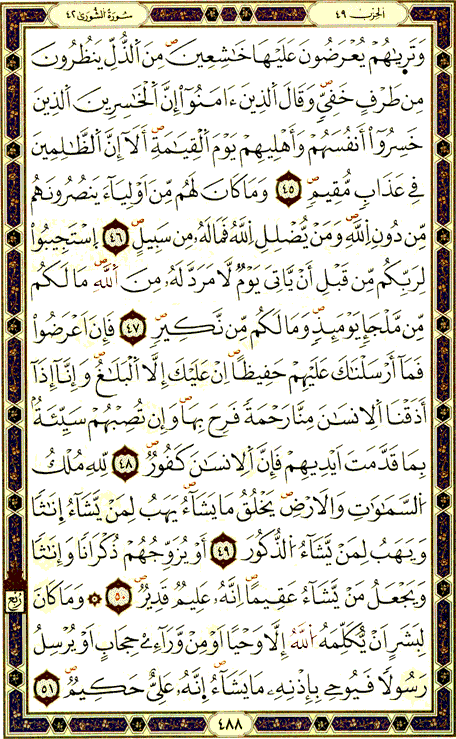 الحزب ٤٩
سورة الشورى ٤٢
وَتَر۪يٰهُمْ يُعْرَضُونَ عَلَيْهَا خَٰشِعِينَ مِنَ اَ۬لذُّلِّ يَنظُرُونَ
مِن طَرْفٍ خَفِيّٖۖ وَقَالَ اَ۬لذِينَ ءَامَنُوٓاْ إِنَّ اَ۬لْخَٰسِرِينَ اَ۬لذِينَ
خَسِرُوٓاْ أَنفُسَهُمْ وَأَهْلِيهِمْ يَوْمَ اَ۬لْقِيَٰمَةِۖ أَلَآ إِنَّ اَ۬لظَّٰلِمِينَ
فِے عَذَابٖ مُّقِيمٖۖ ٤٥ وَمَا كَانَ لَهُم مِّنَ اَوْلِيَآءَ يَنصُرُونَهُم
مِّن دُونِ اِ۬للَّهِۖ وَمَنْ يُّضْلِلِ اِ۬للَّهُ فَمَا لَهُۥ مِن سَبِيلٍۖ ٤٦ اِ۪سْتَجِيبُواْ
لِرَبِّكُم مِّن قَبْلِ أَنْ يَّاتِيَ يَوْمٞ لَّا مَرَدَّ لَهُۥ مِنَ اَ۬للَّهِۖ مَا لَكُم
مِّن مَّلْجَإٖ يَوْمَئِذٖ وَمَا لَكُم مِّن نَّكِيرٖۖ ٤٧ فَإِنَ اَعْرَضُواْ
فَمَآ أَرْسَلْنَٰكَ عَلَيْهِمْ حَفِيظاًۖ اِنْ عَلَيْكَ إِلَّا اَ۬لْبَلَٰغُۖ وَإِنَّآ إِذَآ
أَذَقْنَا اَ۬لِانسَٰنَ مِنَّا رَحْمَةٗ فَرِحَ بِهَاۖ وَإِن تُصِبْهُمْ سَيِّئَةُۢ
بِمَا قَدَّمَتَ اَيْدِيهِمْ فَإِنَّ اَ۬لِانسَٰنَ كَفُورٞۖ ٤٨ لِّلهِ مُلْكُ
اُ۬لسَّمَٰوَٰتِ وَالَارْضِۖ يَخْلُقُ مَا يَشَآءُۖ يَهَبُ لِمَنْ يَّشَآءُ إِنَٰثاٗ
وَيَهَبُ لِمَنْ يَّشَآءُ اُ۬لذُّكُورَ ٤٩ أَوْ يُزَوِّجُهُمْ ذُكْرَاناٗ وَإِنَٰثاٗ
وَيَجْعَلُ مَنْ يَّشَآءُ عَقِيماًۖ اِنَّهُۥ عَلِيمٞ قَدِيرٞۖ ٥٠ ۞ وَمَا كَانَ
لِبَشَرٍ اَنْ يُّكَلِّمَهُ اُ۬للَّهُ إِلَّا وَحْياً اَوْ مِنْ وَّرَآءِےْ حِجَابٍ اَوْ يُرْسِلُ
رَسُولاٗ فَيُوحِے بِإِذْنِهِۦ مَا يَشَآءُۖ إِنَّهُۥ عَلِيٌّ حَكِيمٞۖ ٥١
ربع
٤٨٨